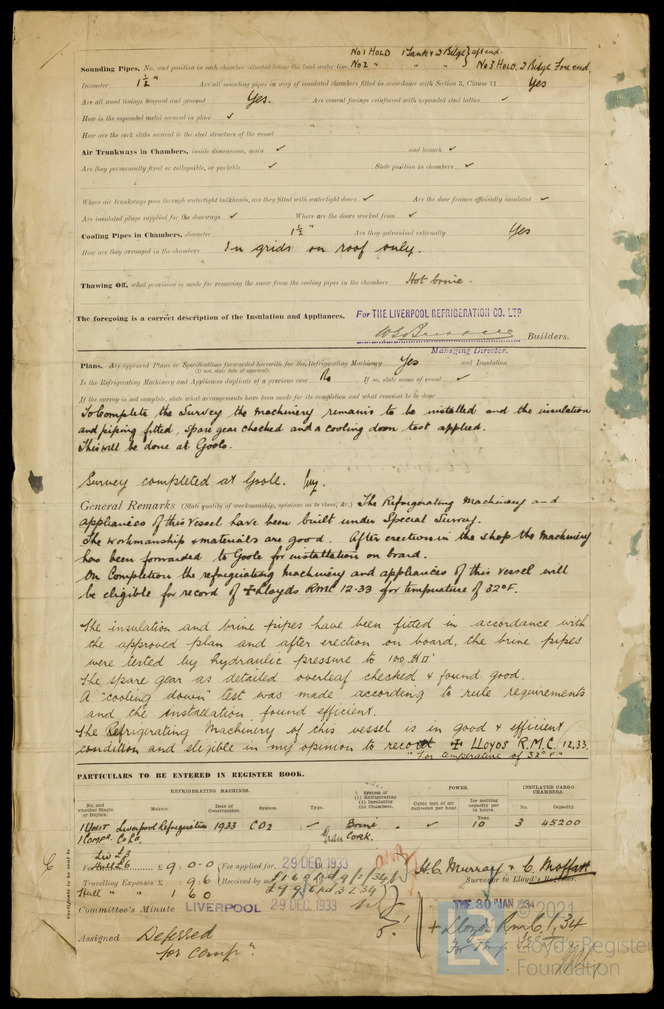 No 1 HOLD 1 Tank & 2 Bilge } aft end.
Sounding Pipes, No. and position in each chamber situated below the load water line No 2 " " " " } No 3 HOLD. 2 Bilge Fore end.
Diameter 1½" Are all sounding pipes in way of insulated chambers fitted in accordance with Section 3, Clause 11 Yes
Are all wood linings tongued and grooved Yes. Are cement facings reinforced with expanded steel lattice ✓
How is the expanded metal secured in place ✓
How are the cork slabs secured to the steel structure of the vessel
Air Trunkways in Chambers, inside dimensions, main ✓ and branch ✓
Are they permanently fixed or collapsible, or portable ✓ State position in chambers ✓
Where air trunkways pass through watertight bulkheads, are they fitted with watertight doors ✓ Are the door frames efficiently insulated ✓
Are insulated plugs supplied for the doorways ✓ Where are the doors worked from ✓
Cooling Pipes in Chambers, diameter 1½" Are they galvanised externally Yes
How are they arranged in the chambers In grids on roof only.
Thawing Off, what provision is made for removing the snow from the cooling pipes in the chambers Hot brine.
The foregoing is a correct description of the Insulation and Appliances. For THE LIVERPOOL REFRIGERATION CO. LTD
Builders.
Managing Director.
Plans. Are approved Plans or Specifications forwarded herewith for the Refrigerating Machinery Yes and Insulation
(If not, state date of approval)
Is the Refrigerating Machinery and Appliances duplicate of a previous case No If so, state name of vessel ✓
If the survey is not complete, state what arrangements have been made for its completion and what remains to be done
To Complete the Survey the machinery remains to be installed and the insulation
and piping fitted, spare gear checked and a cooling down test applied.
This will be done at Goole.
Survey completed at Goole.
General Remarks (State quality of workmanship, opinions as to class, &c.) The Refrigerating Machinery and
appliances of this vessel have been built under Special Survey.
The workmanship & materials are good. After erection in the shop the machinery
has been forwarded to Goole for installation on board.
On Completion the refrigerating machinery and appliances of this vessel will
be eligible for record of ✠ Lloyds RMC 12.33 for temperature of 32°F.
The insulation and brine pipes have been fitted in accordance with
the approved plan and after erection on board, the brine pipes
were tested by hydraulic pressure to 100 #□"
The spare gear as detailed overleaf checked & found good.
A "cooling down" test was made according to rule requirements
and the installation found efficient.
The Refrigerating Machinery of this vessel is in good & efficient
condition and eligible in my opinion to record ✠ LLOYDS R.M.C. 12,33.
"For temperature of 32°F"
PARTICULARS TO BE ENTERED IN REGISTER BOOK.
REFRIGERATING MACHINES. System of (1) Refrigerating (2) Insulating the Chambers. POWER. INSULATED CARGO CHAMBERS.
No. and whether Single or Duplex. Makers. Date of Construction. System. Type. Cubic feet of air delivered per hour Ice melting capacity per 24 hours No. Capacity.
Tons
1 UNIT Liverpool Refrigeration 1933 CO2 ✓ Brine ✓ 10 3 45200
1 COMPR. Co Ld. CORK.
Liv £3
Fee Hull £6 £ 9 : 0 - 0 Fee applied for, 29 DEC. 1933
H.C. Murray & C. Moffatt
Travelling Expenses £ : 9 . 6 Received by me,
Surveyor to Lloyd's Register.
Hull " " 6 0
Committee's Minute LIVERPOOL 29 DEC. 1933 TUE. 30 JAN 1934
Assigned Deferred
for compn.
+ Lloyds RMC 1,34
Certificate to be sent to
© 2021
LR
Lloyd's Register
Foundation